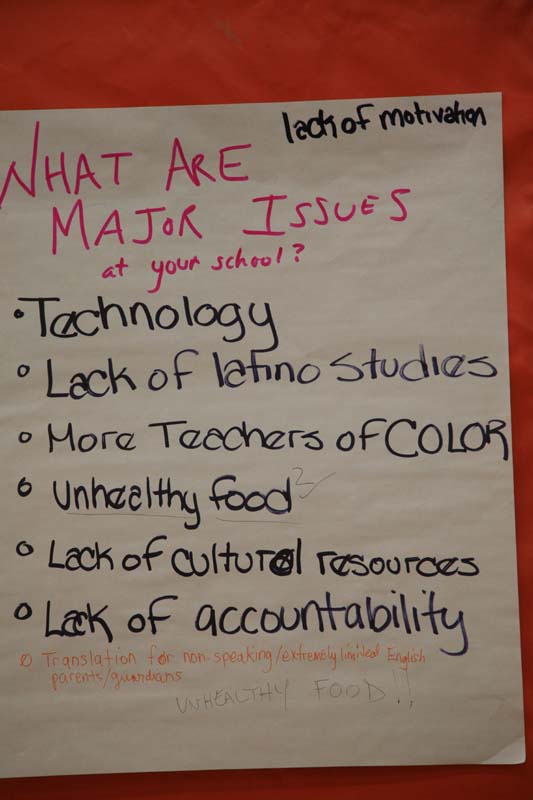 lack of motivation
WHAT ARE
MAJOR ISSUES
at your school?
• Technology
○ Lack of latino studies
○ More Teachers of COLOR
○ Unhealthy food
○ Lack of cultural resources
○ Lack of accountability
○ Translation for non speaking/extremely limited English
parents/guardians
UNHEALTHY FOOD!!